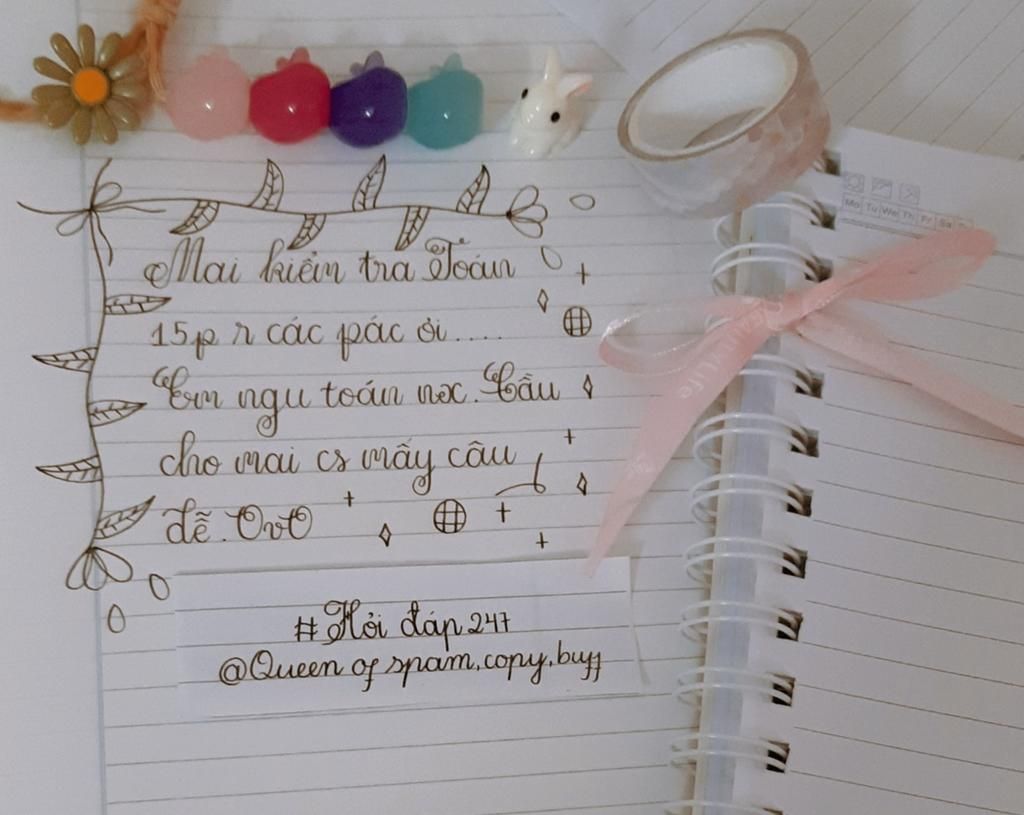 Mo Tu We Th Fr Sa
Mai kiểm tra Toán
15p r các pác ơi....
Em ngu toán nx. Cầu
cho mai cs mấy câu
dễ. OvO
#Hỏi đáp 247
@Queen of spam,copy,buff